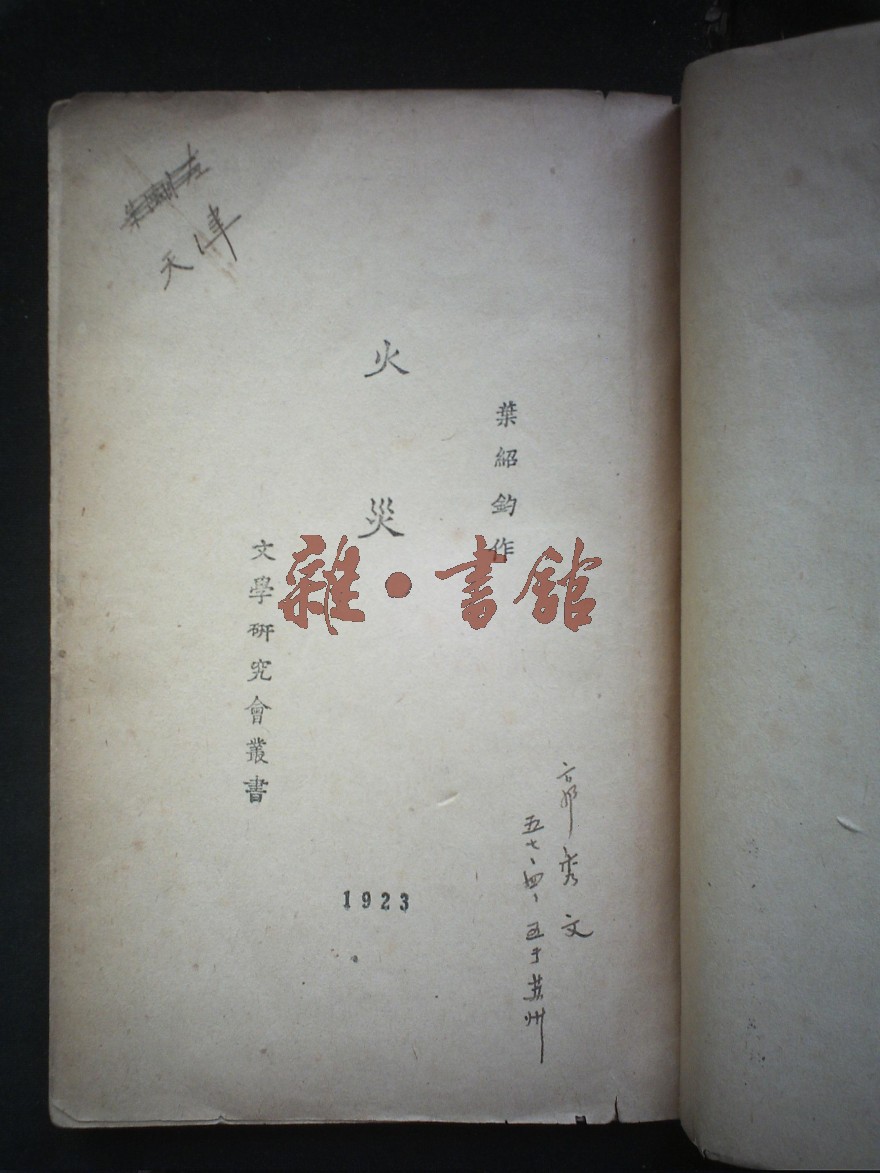 天津
葉紹鈞作
火災
文學研究會叢書
1923
雜·書館
郭秀文
五七、四、五于苏州